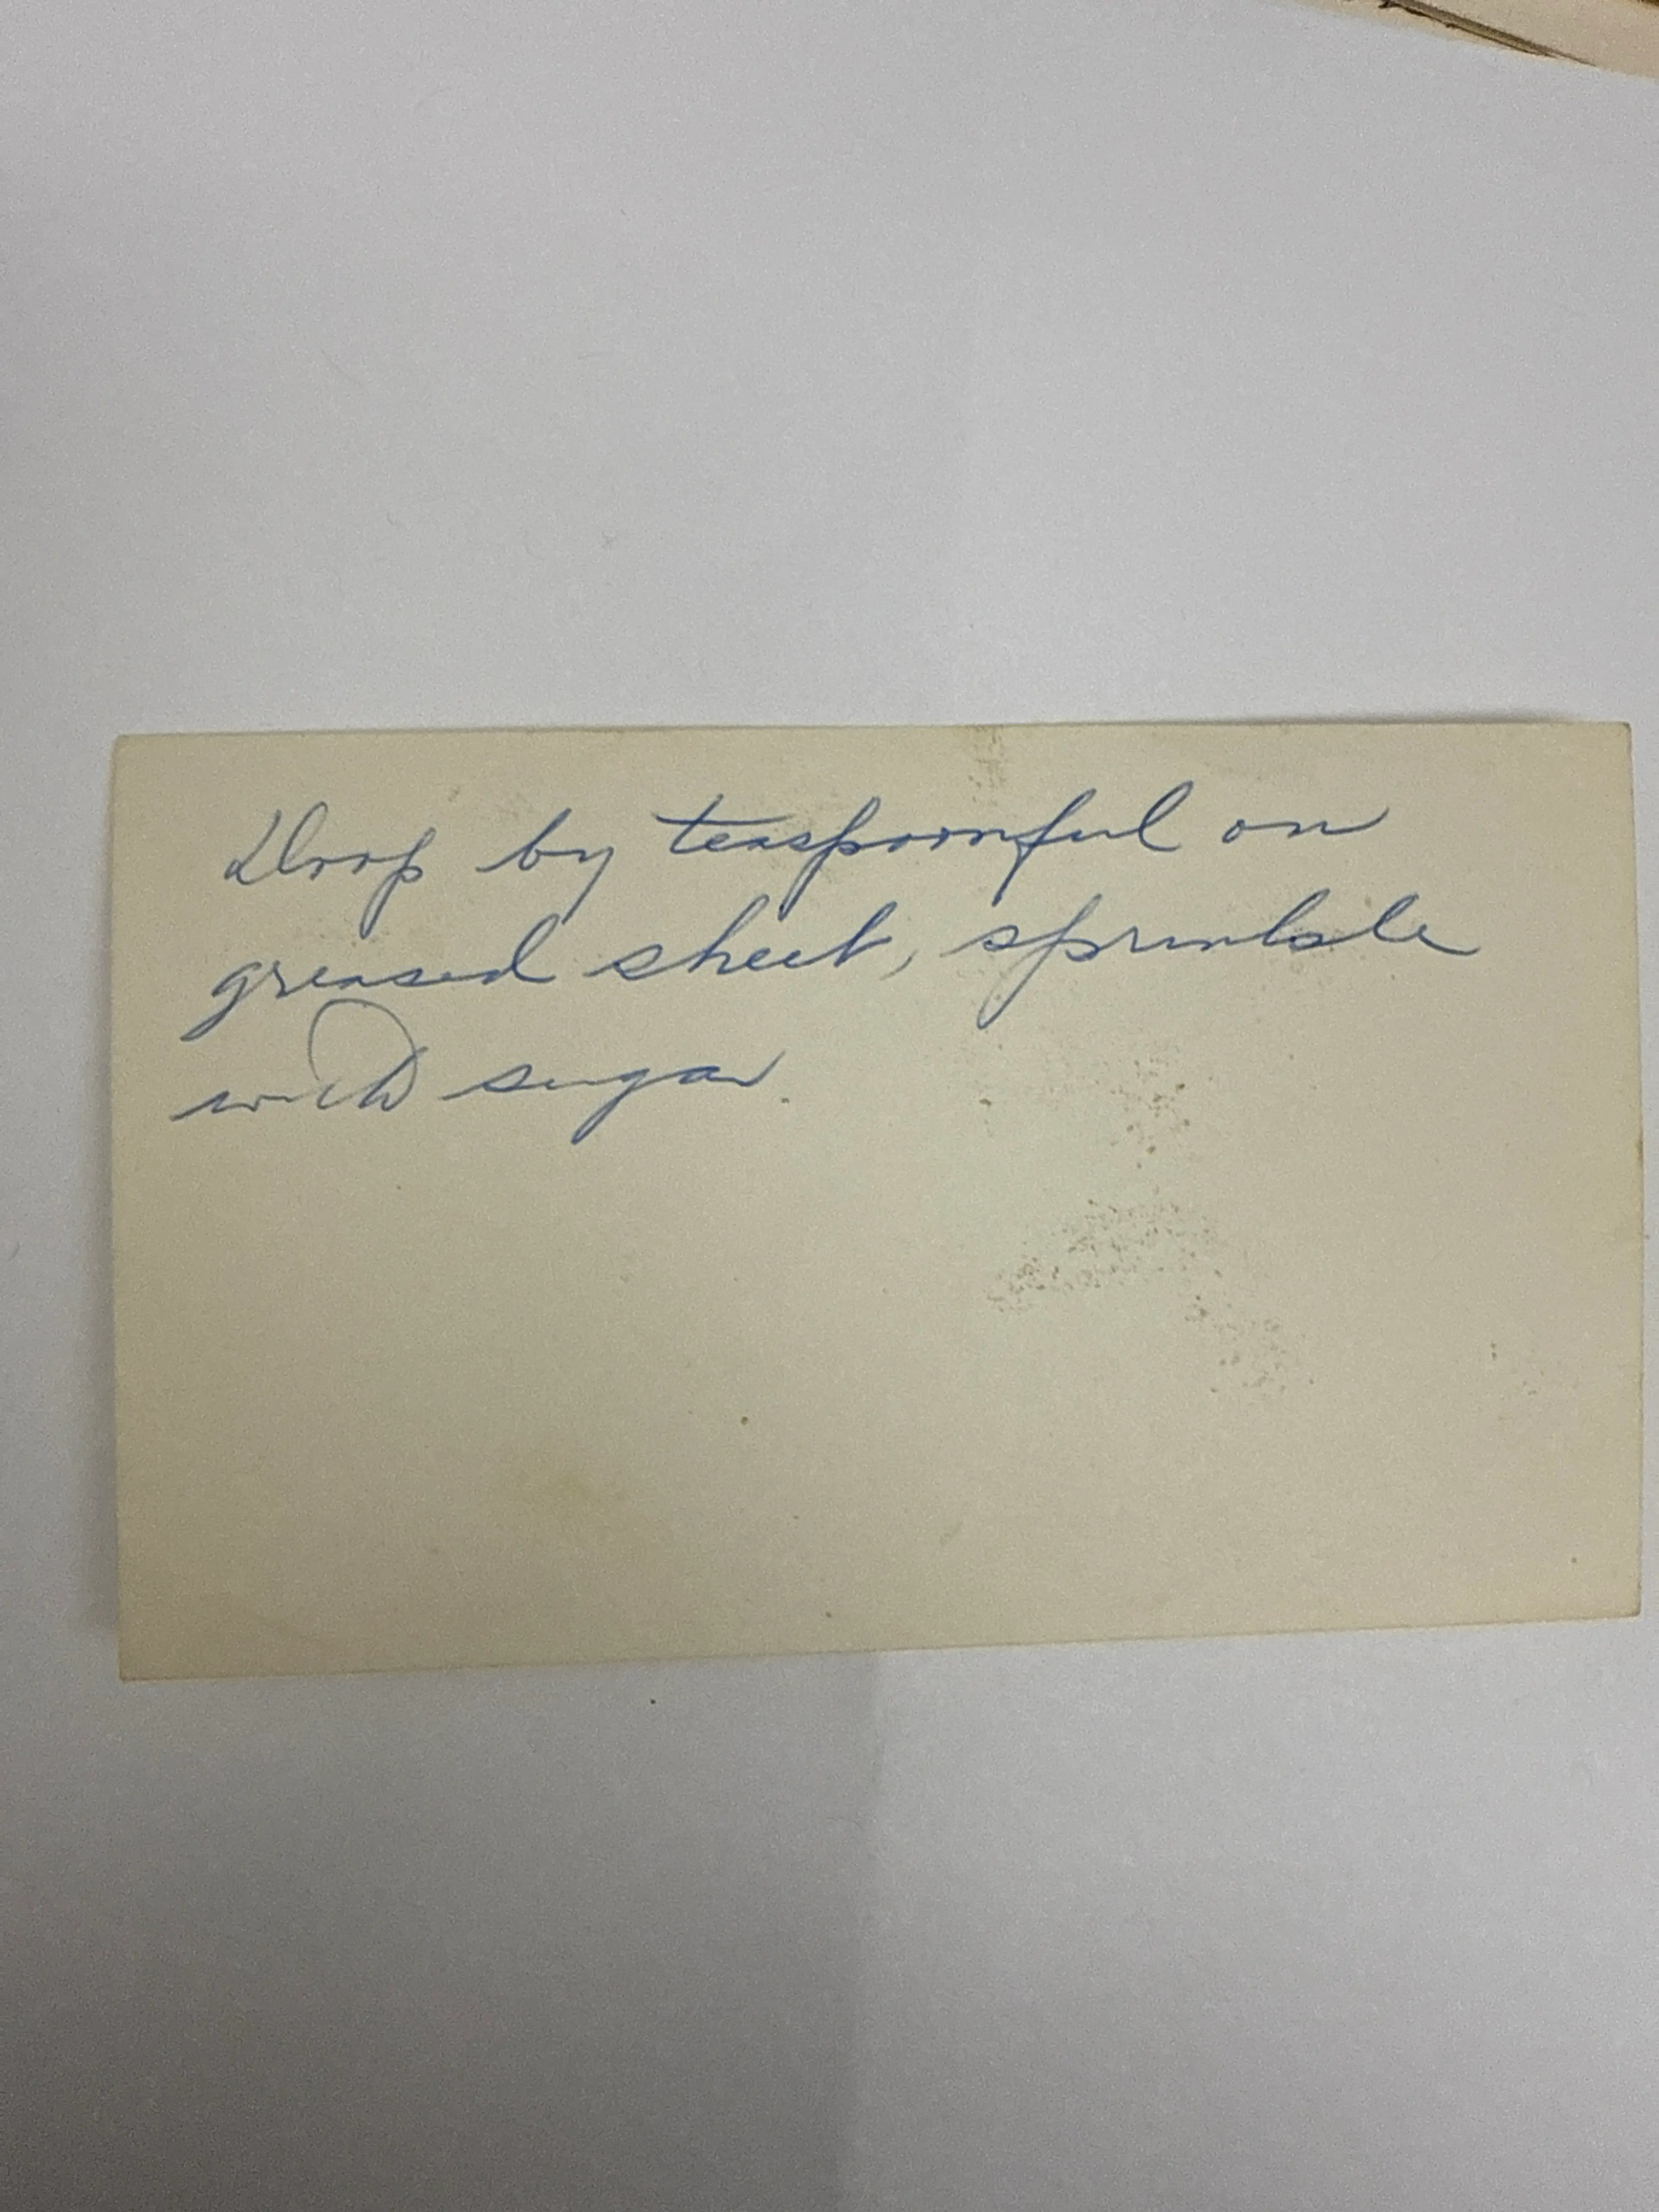 Drop by teaspoonful on
greased sheet, sprinkle
with sugar.